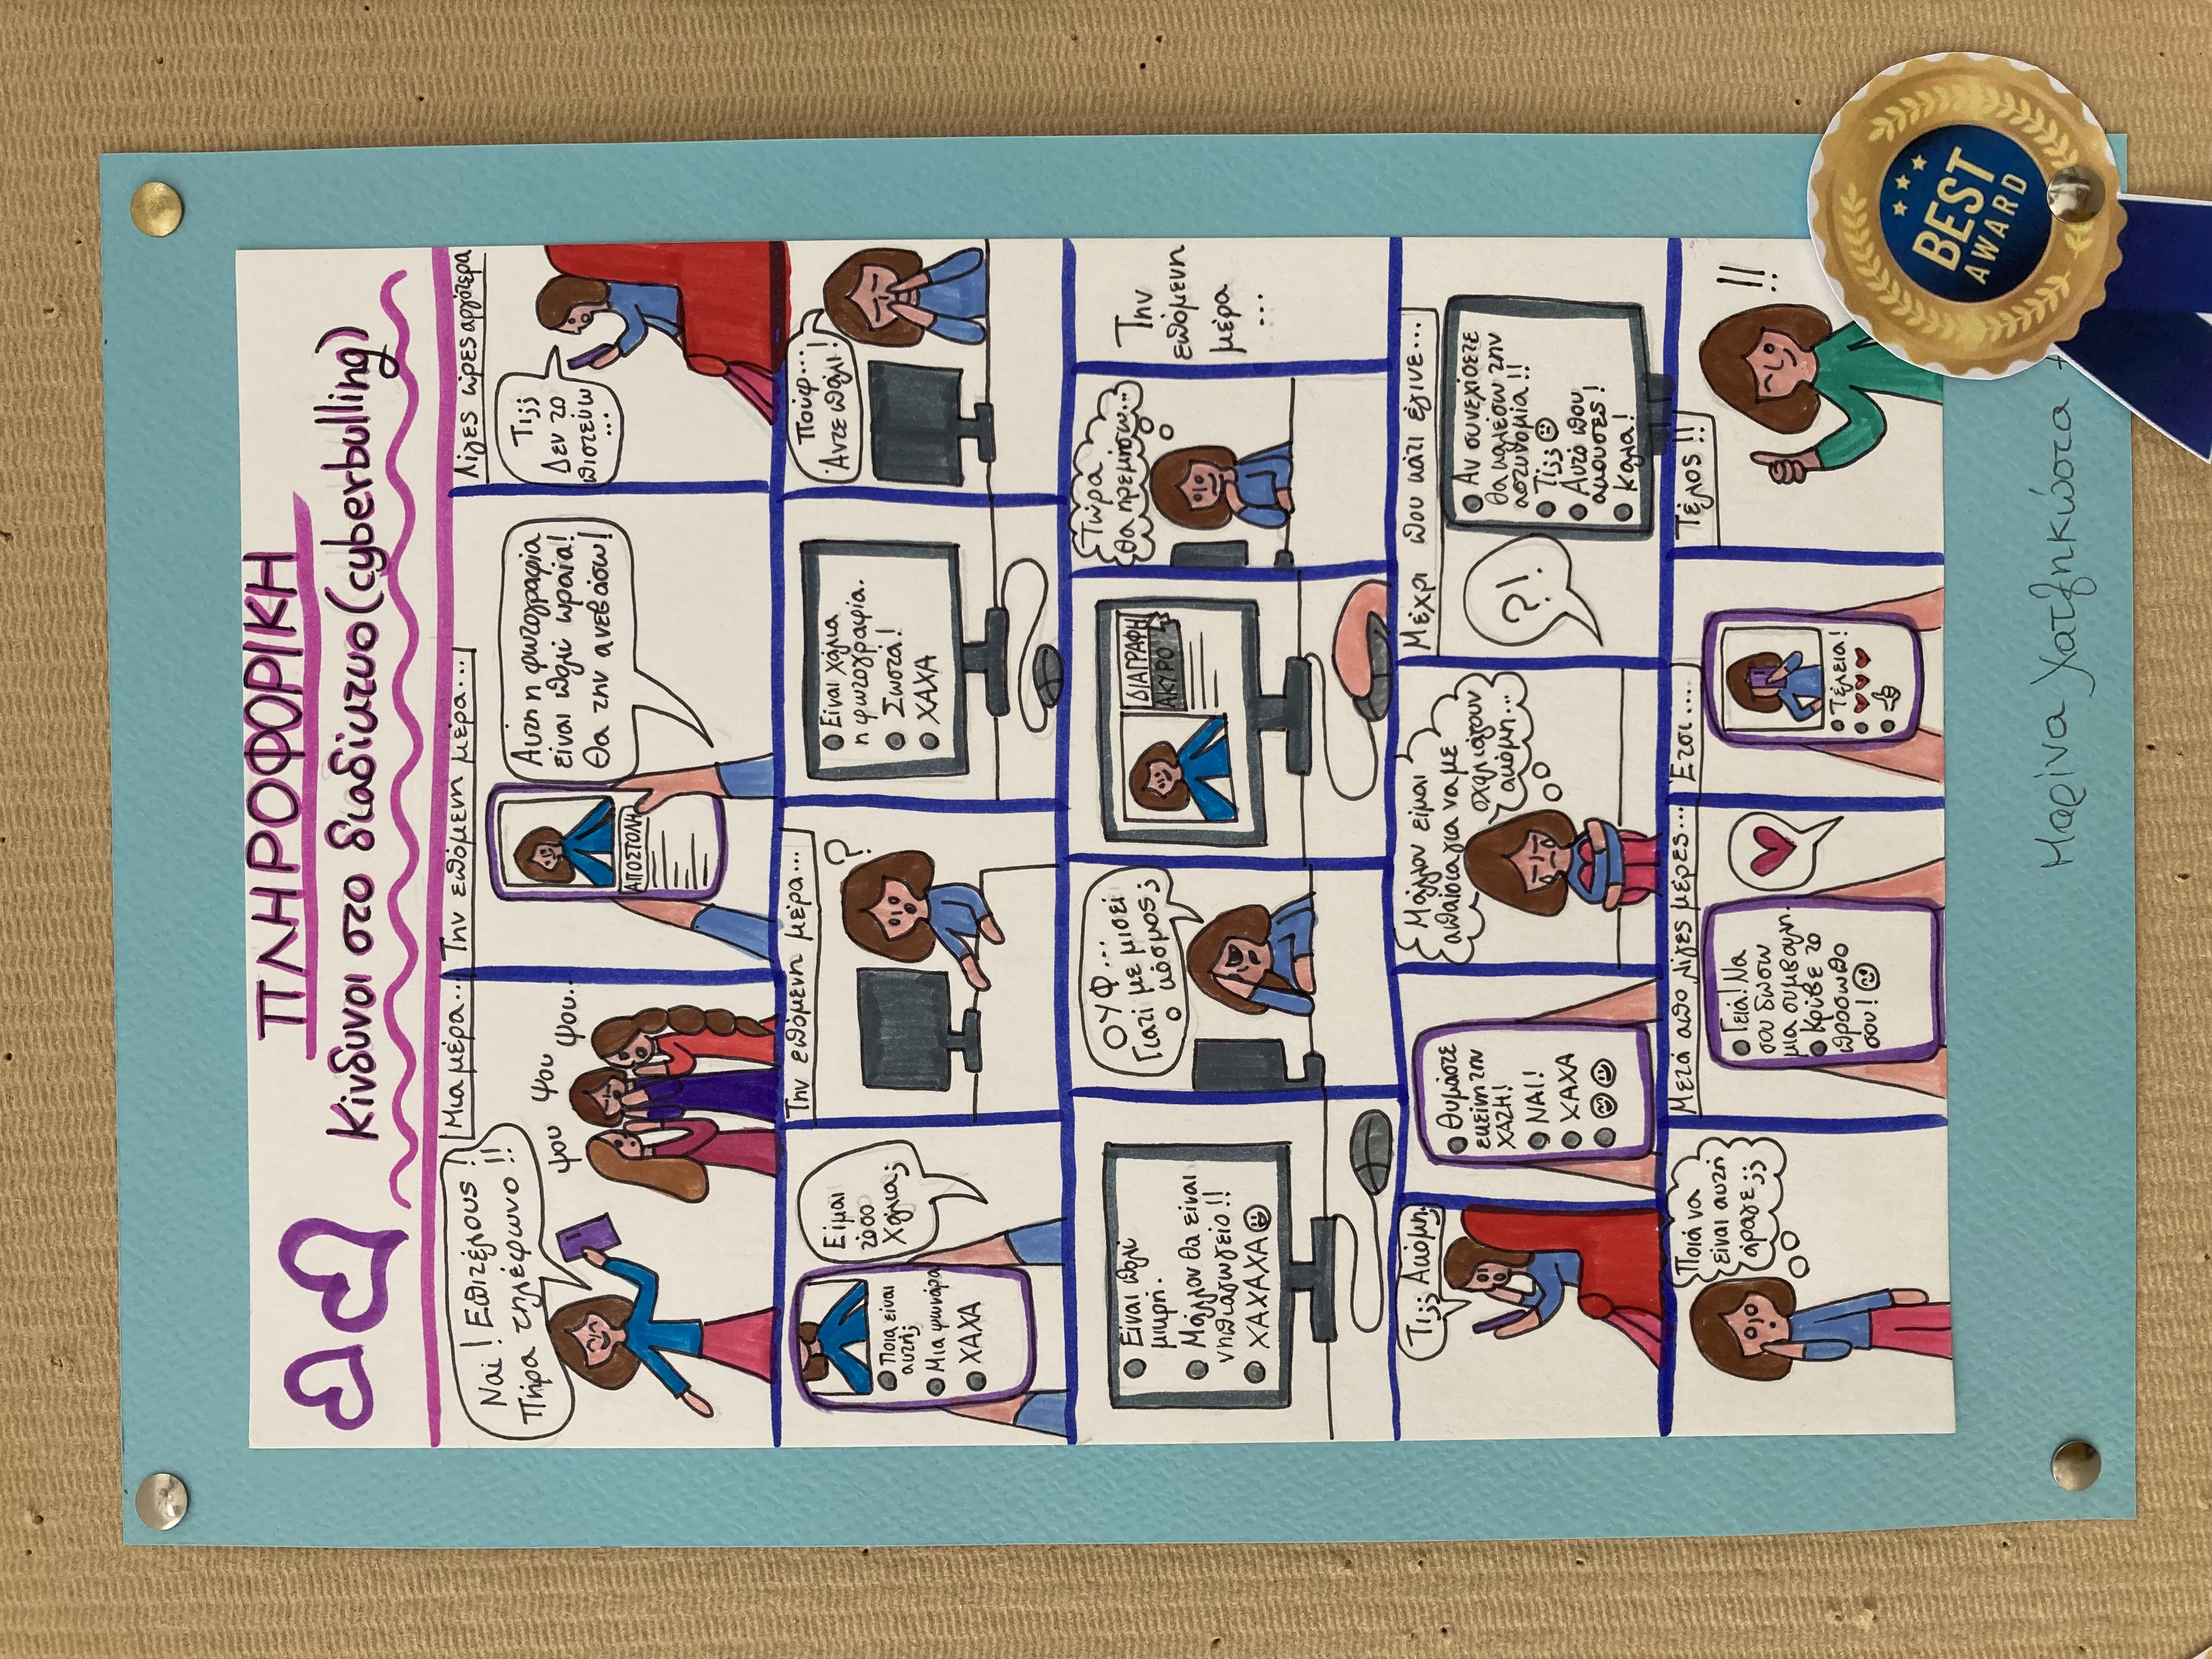 ΠΛΗΡΟΦΟΡΙΚΗ
Κίνδυνοι στο διαδίκτυο (cyberbulling)
Μια μέρα...
Ναι! Επιτέλους!
Πήρα τηλέφωνο!!
ψου ψου ψου...
Την επόμενη μέρα...
ΑΠΟΣΤΟΛΗ
Αυτή η φωτογραφία
είναι πολύ ωραία!
Θα την ανεβάσω!
Λίγες ώρες αργότερα
Τι;;
Δεν το
πιστεύω
...
Ποια είναι
αυτή;
Μια ψωνάρα
ΧΑΧΑ
Είμαι
τόσο
χάλια;
Την επόμενη μέρα...
?
Είναι χάλια
η φωτογραφία.
Σωστά!
ΧΑΧΑ
Πουφ...
Άντε πάλι!
Είναι πολύ
μικρή.
Μάλλον θα είναι
νηπιαγωγείο!!
ΧΑΧΑΧΑΧΑ
ΟΥΦ...
Γιατί με μισεί
ο κόσμος;
ΔΙΑΓΡΑΦΗ
ΑΚΥΡΟ
Τώρα
θα ηρεμήσω...
Την
επόμενη
μέρα
...
Τι;; Ακόμη;
Θυμάστε
εκείνη την
ΧΑΖΗ!
ΝΑΙ!
ΧΑΧΑ
Μάλλον είμαι
απαίσια για να με
σχολιάζουν
ακόμη...
Μέχρι που κάτι έγινε...
?!
Αν συνεχίσετε
θα καλέσω την
αστυνομία!!
Τι;;
Αυτό που
άκουσες!
Καλά!
Ποιά να
είναι αυτή
άραγε;;
Μετά από λίγες μέρες...
Γειά! Να
σου δώσω
μια συμβουλή.
Κρύβε το
πρόσωπο
σου!
Έτσι...
Τέλεια!
Τέλος!!
!!
BEST
AWARD
Μαρίνα Χατζηκώστα